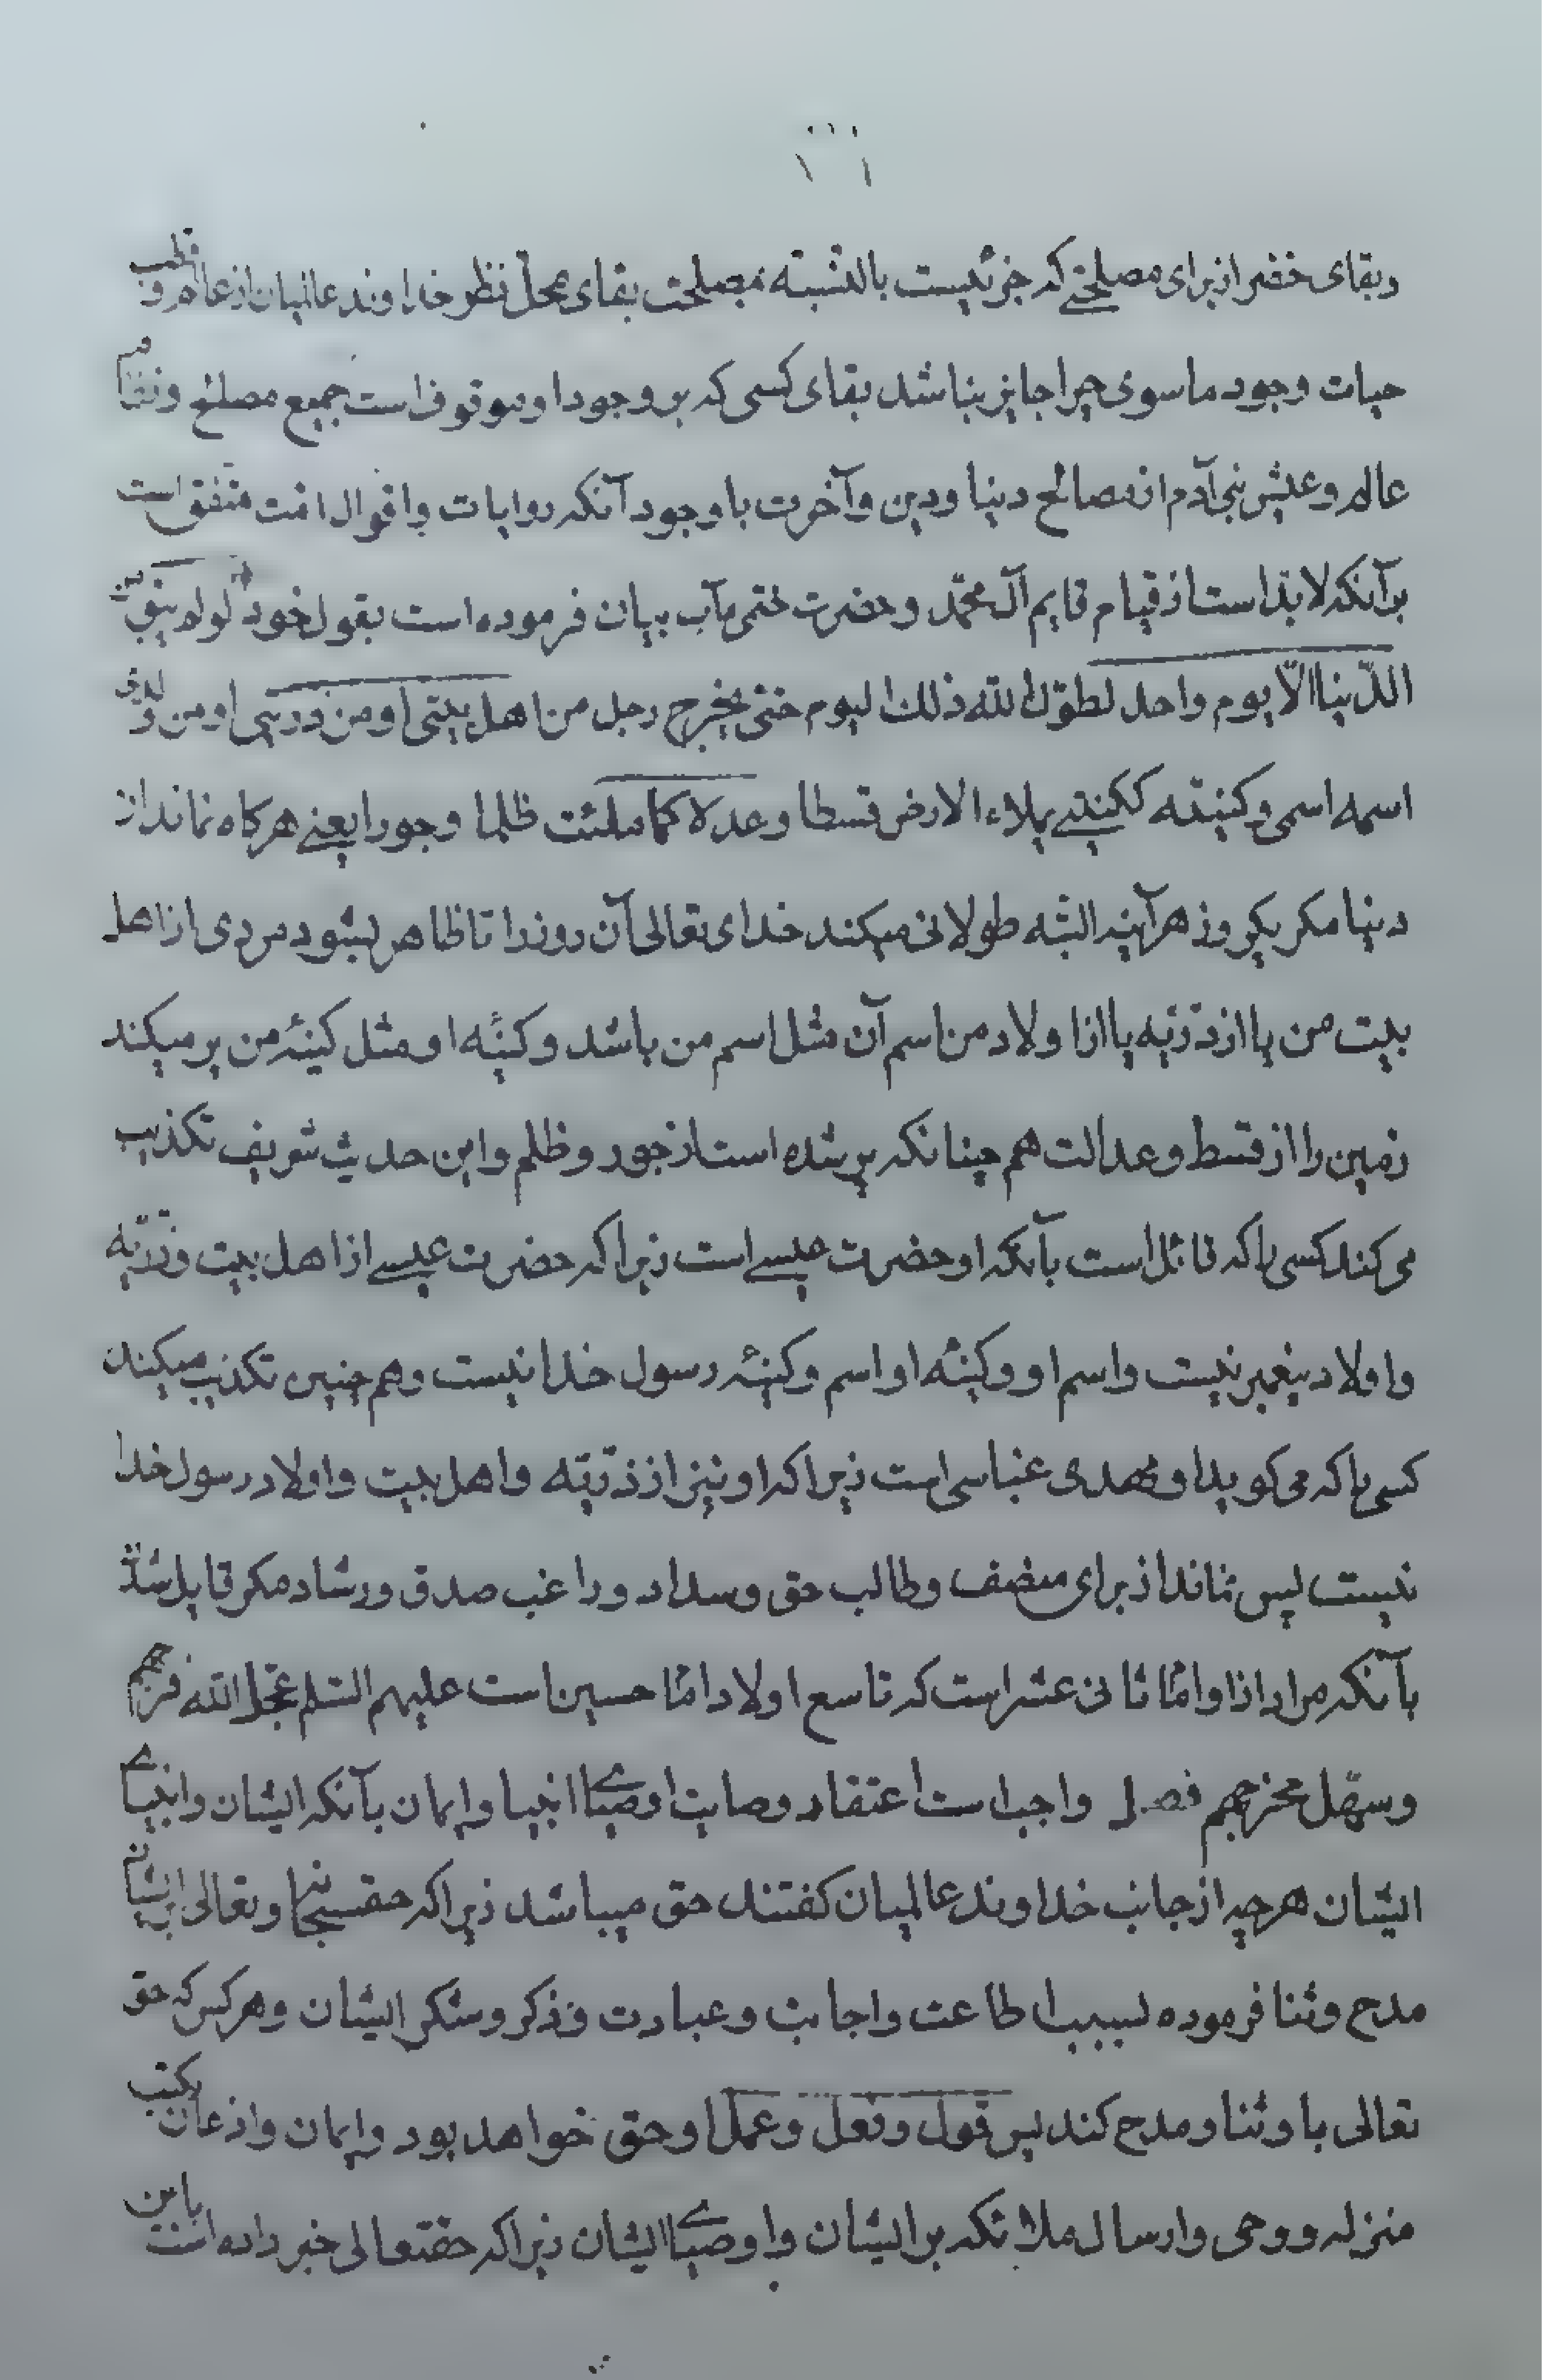 و بقای خضر از برای مصلحتی که جزئیست بالنسبته بمصلحت بقای محل نظر خداوند عالمیان از عالم و قطب
حیات وجود ماسوی چرا جایز نباشد بقای کسی که بر وجود او موقوف است جمیع مصلح و نظام
عالم و عیش بنی آدم از مصالح دنیا و دین و آخرت با وجود آنکه روایات و اقوال امت متفق است
بر آنکه لابد است از قیام قایم آل محمّد و حضرت ختمی مآب بیان فرموده است بقول خود لو لم یبق من
الدّنیا الاّ یوم واحد لطوّل الله ذلك الیوم حتی یخرج رجل من اهل بیتی او من ذریتی او من ولدی
اسمه اسمی و کنیته ککنیتی یملاء الارض قسطا و عدلا کما ملئت ظلما و جورا یعنی هرکاه نماند از
دنیا مکر یکروز هرآینه البته طولانی میکند خدای تعالی آن روز را تا ظاهر بشود مردی از اهل
بیت من یا از ذرّیه یا از اولاد من اسم آن مثل اسم من باشد و کنیه او مثل کنیۀ من پر میکند
زمین را از قسط و عدالت هم چنانکه پر شده است از جور و ظلم و این حدیث شریف تکذیب
می کند کسی را که قائل است بآنکه او حضرت عیسی است زیرا که حضرت عیسی از اهل بیت و ذرّیّه
و اولاد پیغمبر نیست و اسم او و کنیه او اسم و کنیۀ رسول خدا نیست و هم چنین تکذیب میکند
کسی را که می کوید او مهدی عباسی است زیرا که او نیز از ذرّیّه و اهل بیت و اولاد رسول خدا
نیست پس نماند از برای منصف و طالب حق و سداد و راغب صدق و رشاد مکر قایل شدن
بآنکه مراد از او امام ثانی عشر است که تاسع اولاد امام حسین است علیهم السّلم عجّل الله فرجهم
و سهّل مخرجهم فصل واجب است اعتقاد وصایت اوصیای انبیا و ایمان بآنکه ایشان و انبیای
ایشان هرچه از جانب خداوند عالمیان کفتند حق میباشد زیرا که حقسبحانه و تعالی بر ایشان
مدح و ثنا فرموده بسبب اطاعت و اجابت و عبادت و ذکر و شکر ایشان و هر کس که حق
تعالی باو ثنا و مدح کند پس قول و فعل و عمل او حق خواهد بود و ایمان و اذعان بکتب
منزله و وحی و ارسال ملائکه بر ایشان و اوصیای ایشان زیرا که حقتعالی خبر داده است باین